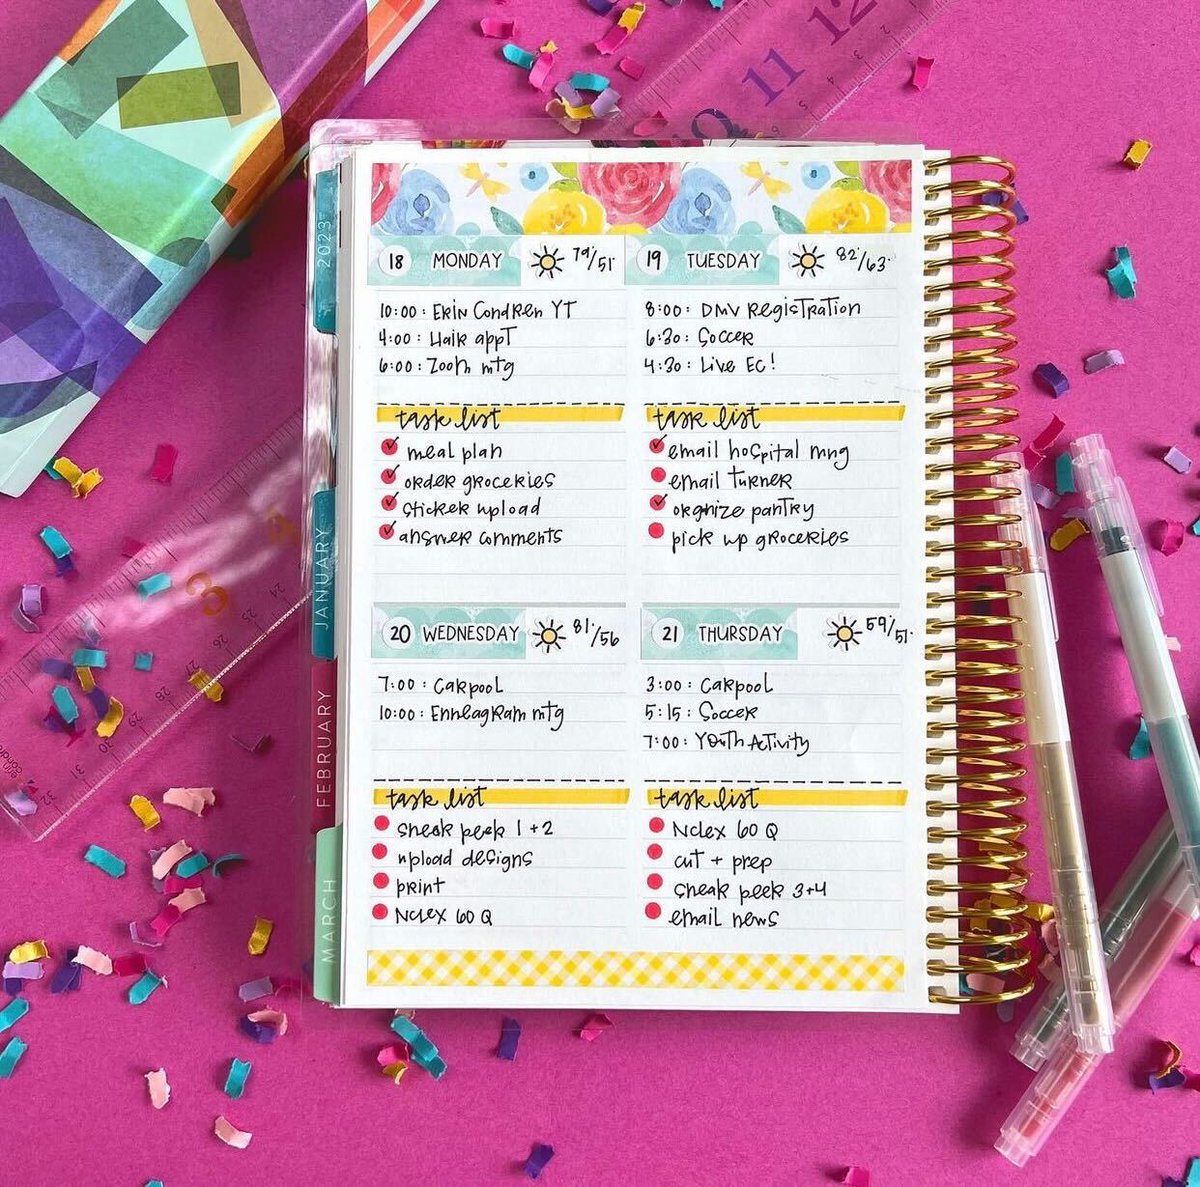 18 MONDAY 79°/51°
10:00: Erin Condren YT
4:00: Hair appt
6:00: Zoom mtg
task list
meal plan
order groceries
sticker upload
answer comments
19 TUESDAY 82°/63°
8:00: DMV Registration
6:30: Soccer
4:30: Live EC!
task list
email hospital mng
email turner
orgnize pantry
pick up groceries
20 WEDNESDAY 81°/56
7:00: Carpool
10:00: Enneagram mtg
task list
sneak peek 1+2
upload designs
print
Nclex 60 Q
21 THURSDAY 59°/51°
3:00: Carpool
5:15: Soccer
7:00: Youth Activity
task list
Nclex 60 Q
cut + prep
sneak peek 3+4
email news
2023
JANUARY
FEBRUARY
MARCH
10 11 12
erin condren
28
30
31
32